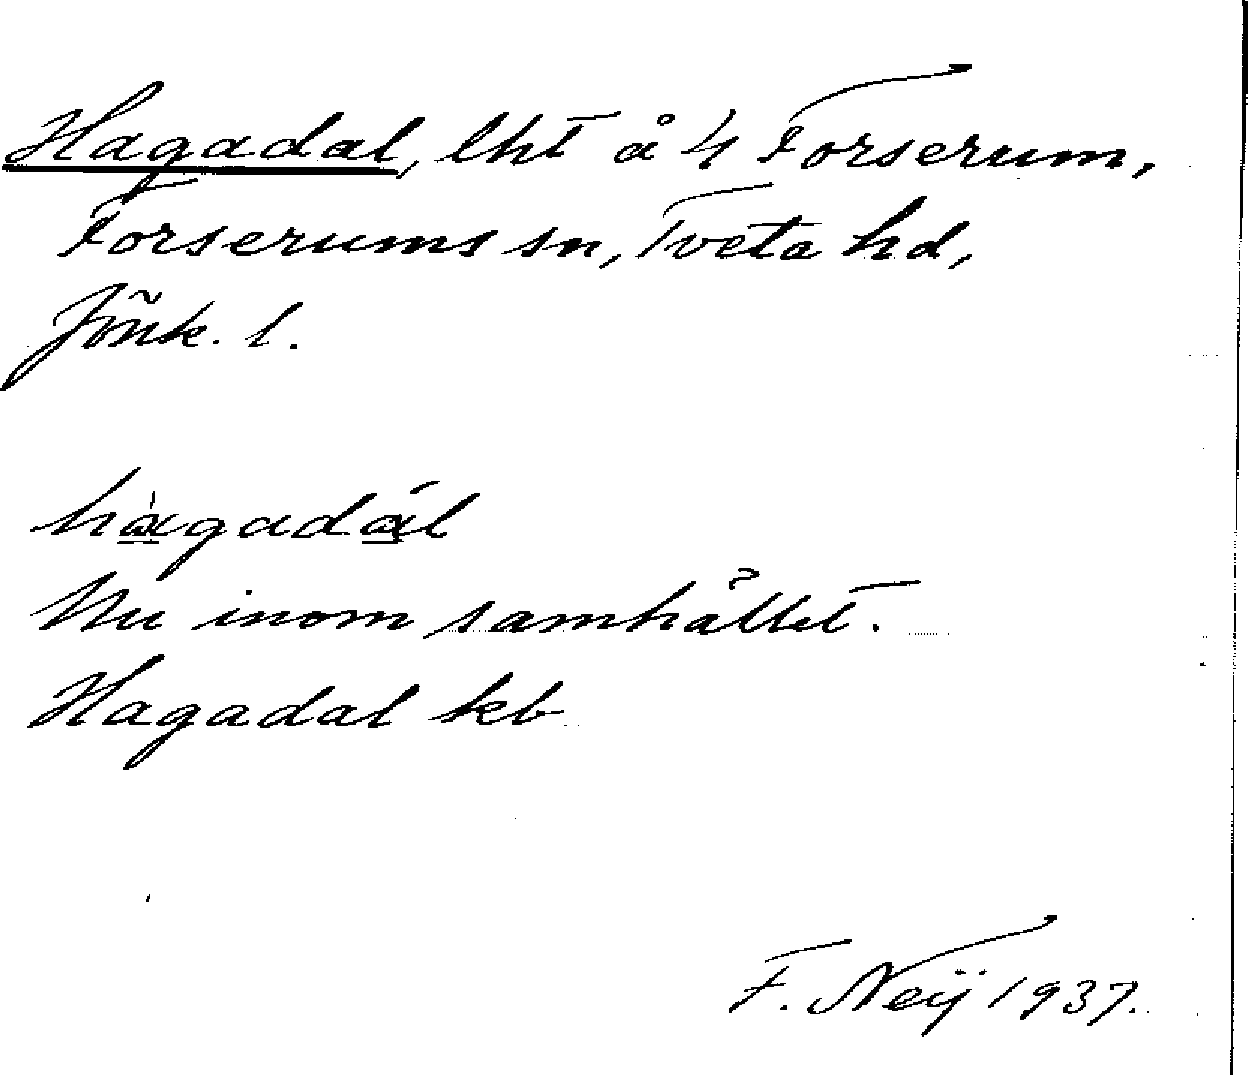 Hagadal, lht å 4 Forserum,
Forserums sn, Tveta hd,
Jönk. l.
hàgadál
Nu inom samhället.
Hagadal kb
F. Neij 1937.